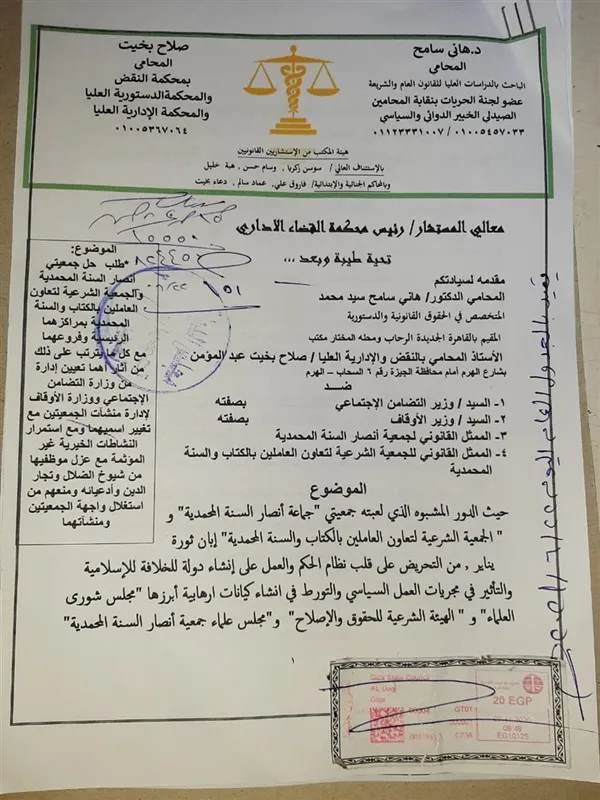 د.هاني سامح
المحامي
الباحث بالدراسات العليا للقانون العام والشريعة
عضو لجنة الحريات بنقابة المحامين
الصيدلي الخبير الدوائي والسياسي
٠١١٢٣٣٣١٠٠٧ / ٠١٠٠٥٤٥٧٠٣٣
صلاح بخيت
المحامى
بمحكمة النقض
والمحكمةالدستورية العليا
والمحكمة الإدارية العليا
٠١٠٠٥٣٦٧٠٦٤
هيئة المكتب من الإستشاريين القانونيين
بالإستئناف العالي/ سوسن زكريا , وسام حسن, هبة خليل
وبالمحاكم الجنائية والإبتدائية/ فاروق علي, عماد سالم , دعاء بخيت
معالي المستشار/ رئيس محكمة القضاء الاداري
تحية طيبة وبعد ...
مقدمه لسيادتكم
المحامي الدكتور/ هاني سامح سيد محمد
المتخصص في الحقوق القانونية والدستورية
المقيم بالقاهرة الجديدة الرحاب ومحله المختار مكتب
الأستاذ المحامي بالنقض والإدارية العليا / صلاح بخيت عبد المؤمن
بشارع الهرم أمام محافظة الجيزة رقم ٦ السحاب - الهرم
ضد
١- السيد / وزير التضامن الإجتماعي بصفته
٢- السيد / وزير الأوقاف بصفته
٣- الممثل القانوني لجمعية أنصار السنة المحمدية
٤- الممثل القانوني للجمعية الشرعية لتعاون العاملين بالكتاب والسنة
المحمدية
الموضوع:
*طلب حل جمعيتي
أنصار السنة المحمدية
والجمعية الشرعية لتعاون
العاملين بالكتاب والسنة
المحمدية بمراكزهما
الرئيسية وفروعهما
مع كل ما يترتب على ذلك
من آثار أهما تعيين إدارة
من وزارة التضامن
الإجتماعي ووزارة الأوقاف
لإدارة منشآت الجمعيتين مع
تغيير اسميهما ومع استمرار
النشاطات الخيرية غير
المؤثمة مع عزل موظفيها
من شيوخ الضلال وتجار
الدين وأدعيائه ومنعهم من
استغلال واجهة الجمعيتين
ومنشآتهما
الموضوع
حيث الدور المشبوه الذي لعبته جمعيتي "جماعة أنصار السنة المحمدية" و
" الجمعية الشرعية لتعاون العاملين بالكتاب والسنة المحمدية" إبان ثورة
يناير , من التحريض على قلب نظام الحكم والعمل على إنشاء دولة للخلافة للإسلامية
والتأثير في مجريات العمل السياسي والتورط في انشاء كيانات ارهابية أبرزها "مجلس شورى
العلماء" و " الهيئة الشرعية للحقوق والإصلاح" و"مجلس علماء جمعية أنصار السنة المحمدية"
١
Giza State Council
AL Doqi
Giza
20 EGP
GT01
09:48
EG10125